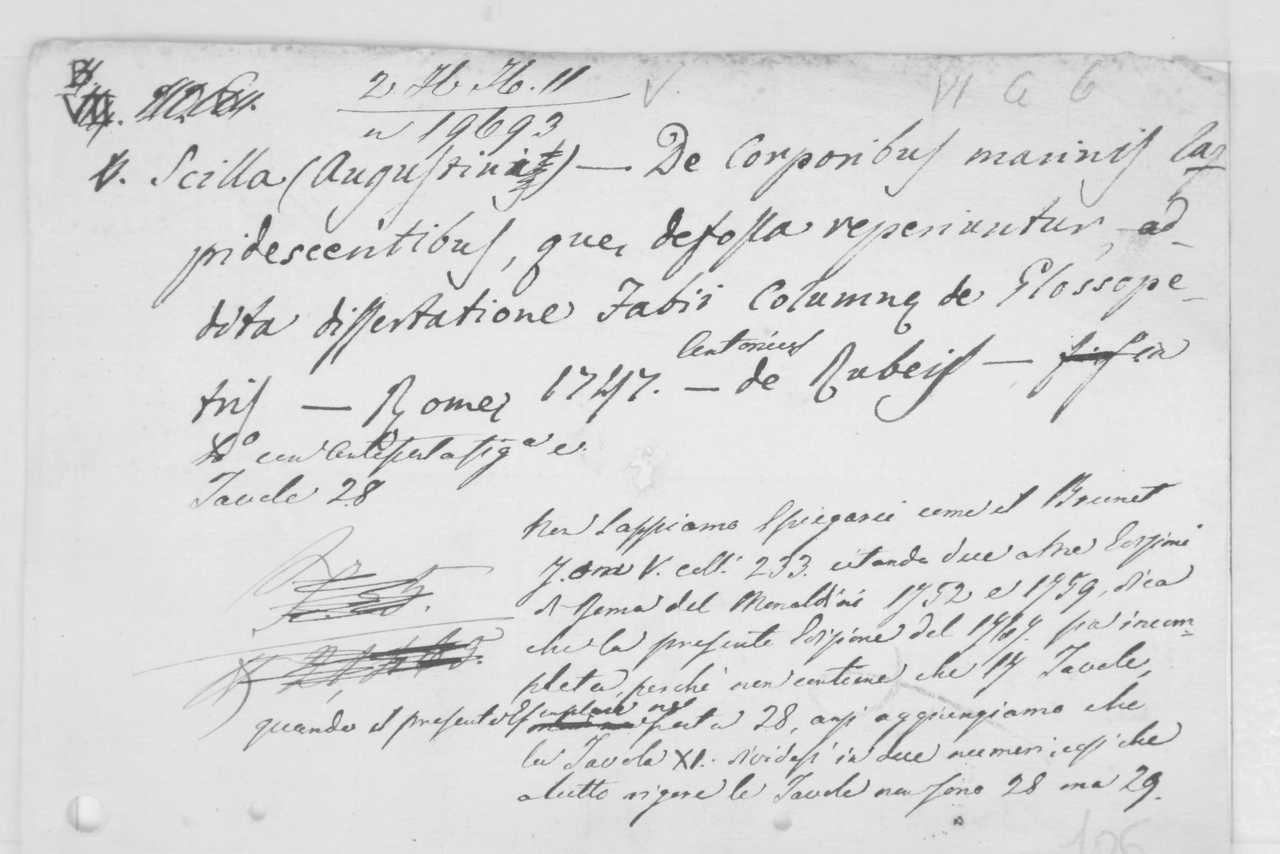 2 Hb Hb. 11
V.
VI G 6
n 19693
V. Scilla (Augustini) — De Corporibus marinis la-
pidescentibus, quę defossa reperiuntur, ad-
dita dissertatione Fabii Columnę de Glossope-
tris — Romę 1747. — Antonius de Rubeis — in
4º con antiporta figª e
Tavole 28
Non sappiamo spiegarci come il Brunet
Tom V. coll. 233. citando due altre Edizioni
di Roma del Monaldini 1752 e 1759, dica
che la presente Edizione del 1747. sia incom-
pleta, perché non contiene che 17 Tavole,
quando il presente Esemplare ne porta 28, anzi aggiungiamo che
la Tavola XI. dividesi in due numeri, così che
a tutto rigore le Tavole non sono 28 ma 29.
106